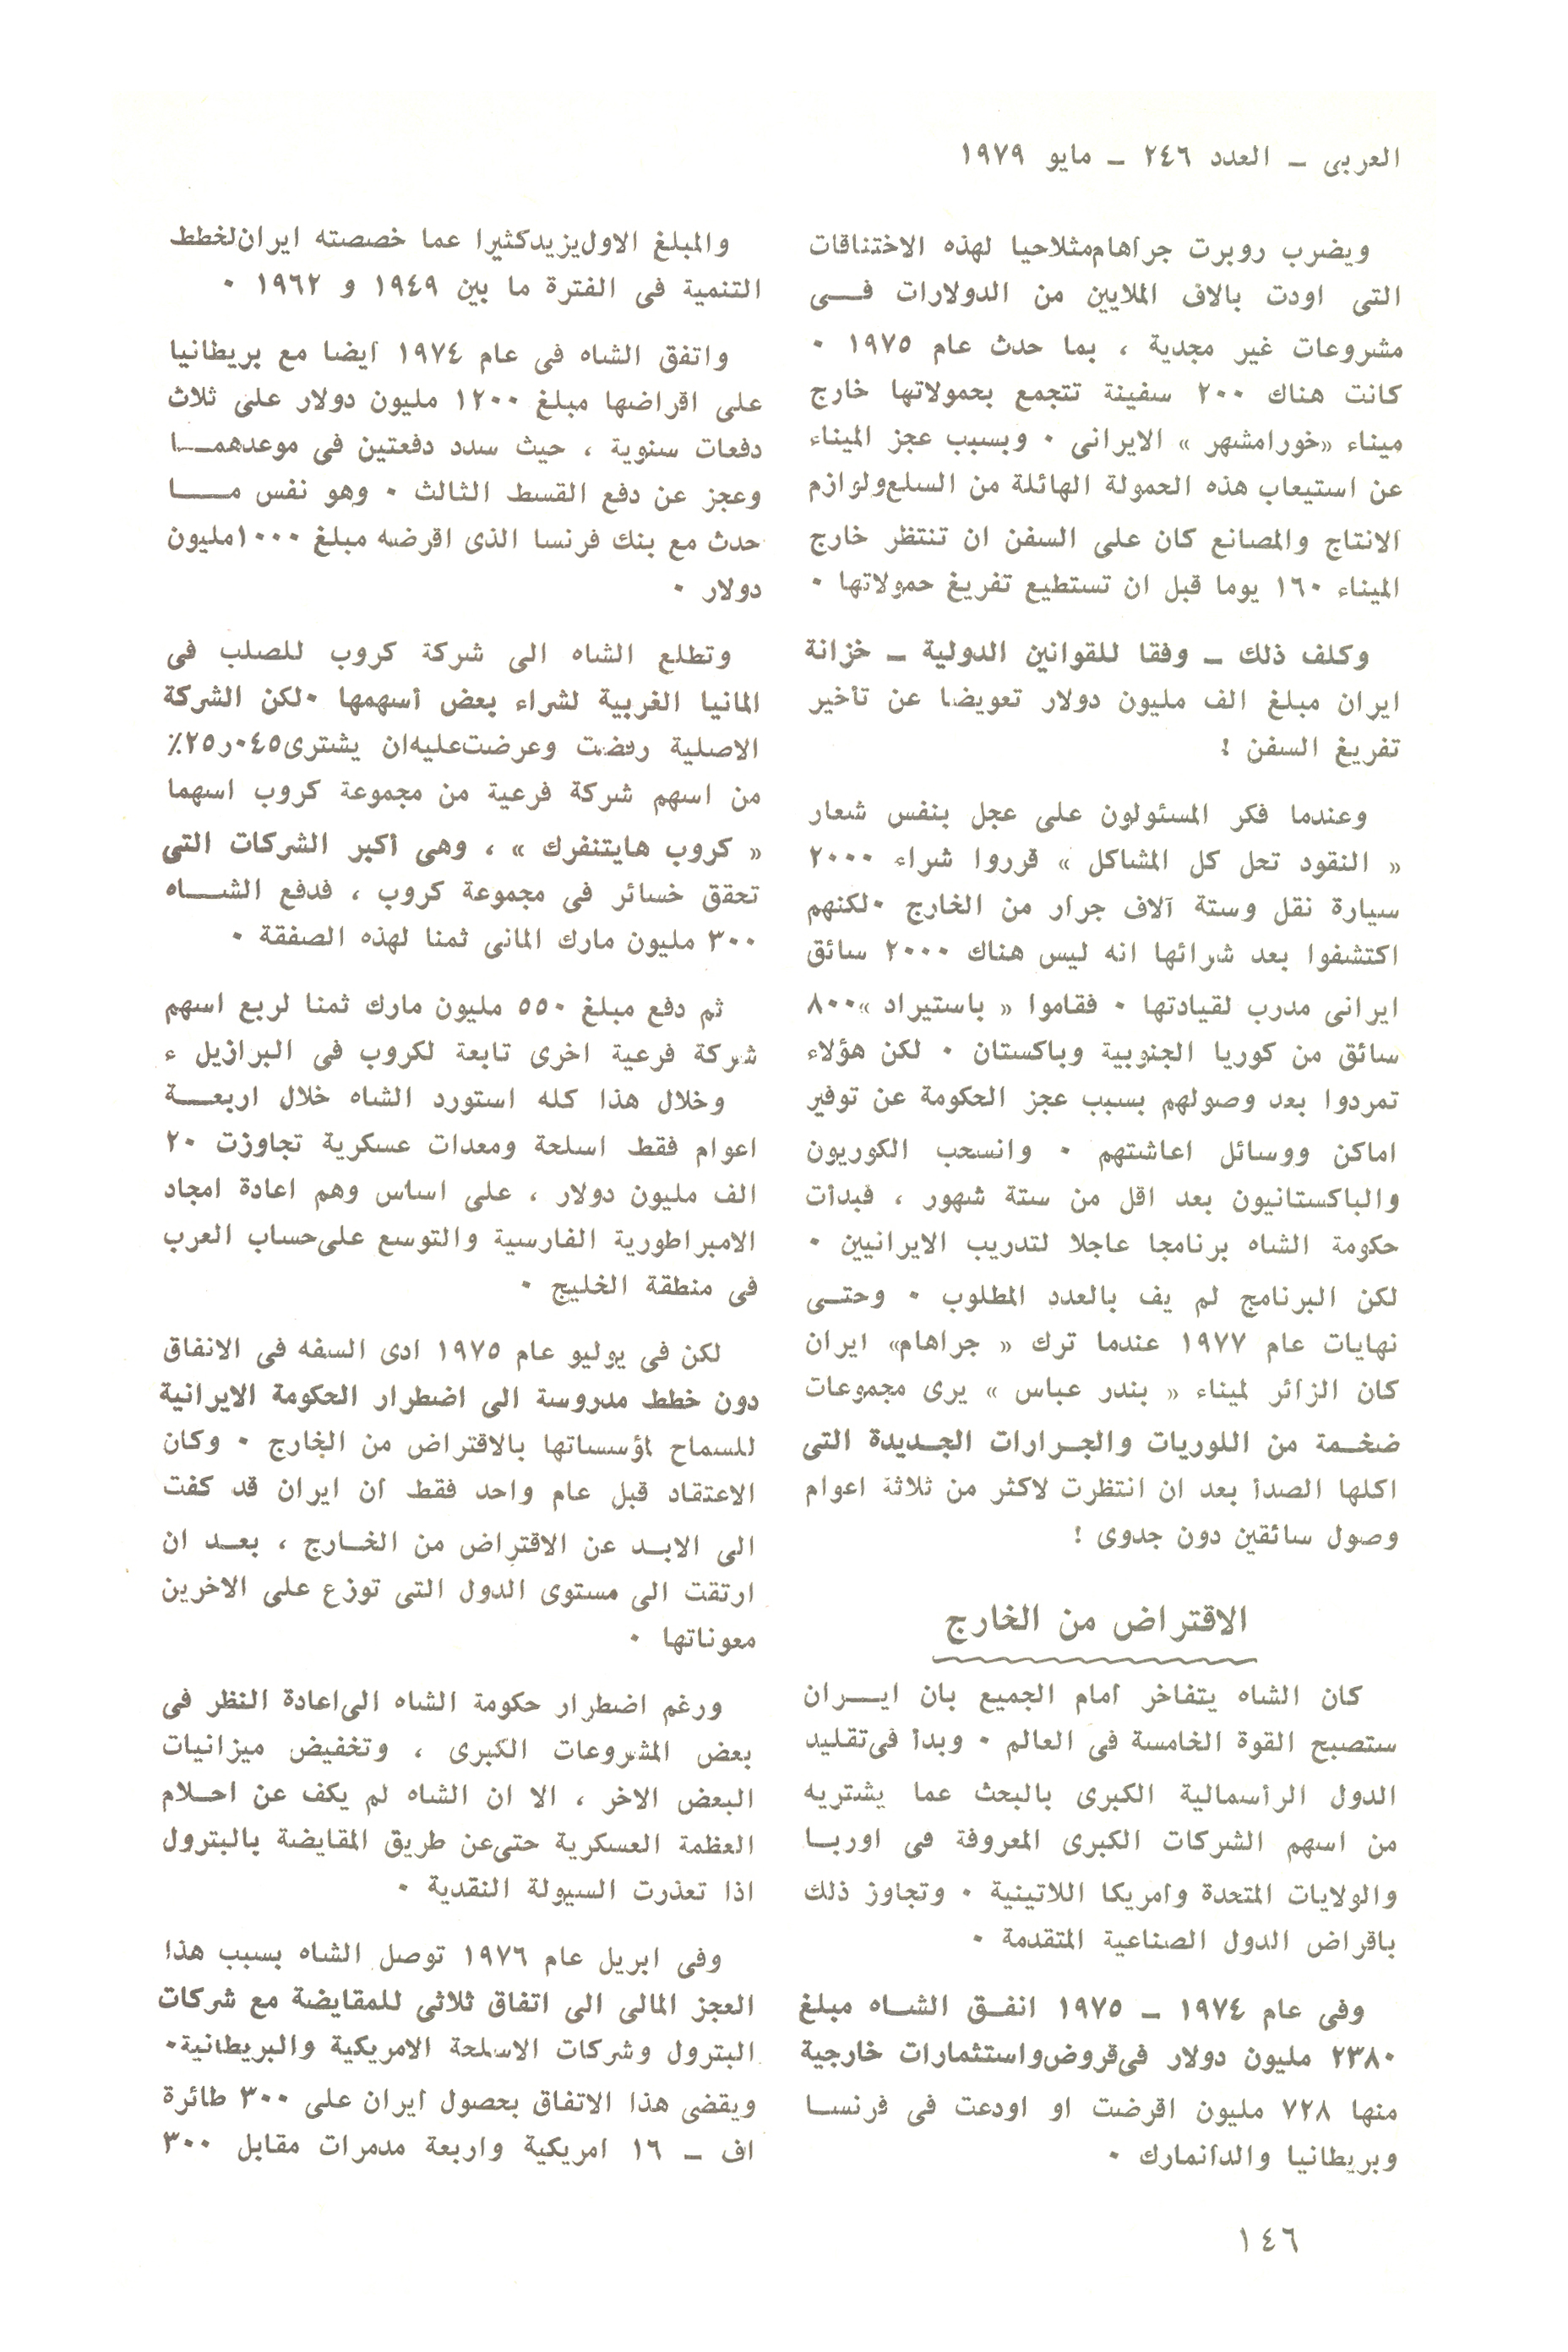 العربى – العدد ٢٤٦ – مايو ١٩٧٩
ويضرب روبرت جراهام مثلا حيا لهذه الاختناقات
التى اودت بالاف الملايين من الدولارات فى
مشروعات غير مجدية ، بما حدث عام ١٩٧٥ ٠
كانت هناك ٢٠٠ سفينة تتجمع بحمولاتها خارج
ميناء «خورامشهر » الايرانى ٠ وبسبب عجز الميناء
عن استيعاب هذه الحمولة الهائلة من السلع ولوازم
الانتاج والمصانع كان على السفن ان تنتظر خارج
الميناء ١٦٠ يوما قبل ان تستطيع تفريغ حمولاتها ٠
وكلف ذلك – وفقا للقوانين الدولية – خزانة
ايران مبلغ الف مليون دولار تعويضا عن تأخير
تفريغ السفن !
وعندما فكر المسئولون على عجل بنفس شعار
« النقود تحل كل المشاكل » قرروا شراء ٢٠٠٠
سيارة نقل وستة آلاف جرار من الخارج ٠ لكنهم
اكتشفوا بعد شرائها انه ليس هناك ٢٠٠٠ سائق
ايرانى مدرب لقيادتها ٠ فقاموا « باستيراد »٨٠٠
سائق من كوريا الجنوبية وباكستان ٠ لكن هؤلاء
تمردوا بعد وصولهم بسبب عجز الحكومة عن توفير
اماكن ووسائل اعاشتهم ٠ وانسحب الكوريون
والباكستانيون بعد اقل من ستة شهور ، فبدأت
حكومة الشاه برنامجا عاجلا لتدريب الايرانيين ٠
لكن البرنامج لم يف بالعدد المطلوب ٠ وحتى
نهايات عام ١٩٧٧ عندما ترك « جراهام» ايران
كان الزائر لميناء « بندر عباس » يرى مجموعات
ضخمة من اللوريات والجرارات الجديدة التى
اكلها الصدأ بعد ان انتظرت لاكثر من ثلاثة اعوام
وصول سائقين دون جدوى !
الاقتراض من الخارج
كان الشاه يتفاخر امام الجميع بان ايران
ستصبح القوة الخامسة فى العالم ٠ وبدأ فى تقليد
الدول الرأسمالية الكبرى بالبحث عما يشتريه
من اسهم الشركات الكبرى المعروفة فى اوربا
والولايات المتحدة وامريكا اللاتينية ٠ وتجاوز ذلك
باقراض الدول الصناعية المتقدمة ٠
وفى عام ١٩٧٤ – ١٩٧٥ انفق الشاه مبلغ
٢٣٨٠ مليون دولار فى قروض واستثمارات خارجية
منها ٧٢٨ مليون اقرضت او اودعت فى فرنسا
وبريطانيا والدانمارك ٠
والمبلغ الاول يزيد كثيرا عما خصصته ايران لخطط
التنمية فى الفترة ما بين ١٩٤٩ و ١٩٦٢ ٠
واتفق الشاه فى عام ١٩٧٤ ايضا مع بريطانيا
على اقراضها مبلغ ١٢٠٠ مليون دولار على ثلاث
دفعات سنوية ، حيث سدد دفعتين فى موعدهما
وعجز عن دفع القسط الثالث ٠ وهو نفس ما
حدث مع بنك فرنسا الذى اقرضه مبلغ ١٠٠٠مليون
دولار ٠
وتطلع الشاه الى شركة كروب للصلب فى
المانيا الغربية لشراء بعض أسهمها ٠ لكن الشركة
الاصلية رفضت وعرضت عليه ان يشترى ٠٤٥ر٢٥٪
من اسهم شركة فرعية من مجموعة كروب اسهما
« كروب هايتنفرك » ، وهى أكبر الشركات التى
تحقق خسائر فى مجموعة كروب ، فدفع الشاه
٣٠٠ مليون مارك المانى ثمنا لهذه الصفقة ٠
ثم دفع مبلغ ٥٥٠ مليون مارك ثمنا لربع اسهم
شركة فرعية اخرى تابعة لكروب فى البرازيل ء
وخلال هذا كله استورد الشاه خلال اربعة
اعوام فقط اسلحة ومعدات عسكرية تجاوزت ٢٠
الف مليون دولار ، على اساس وهم اعادة امجاد
الامبراطورية الفارسية والتوسع على حساب العرب
فى منطقة الخليج ٠
لكن فى يوليو عام ١٩٧٥ ادى السفه فى الانفاق
دون خطط مدروسة الى اضطرار الحكومة الايرانية
للسماح لمؤسساتها بالاقتراض من الخارج ٠ وكان
الاعتقاد قبل عام واحد فقط ان ايران قد كفت
الى الابد عن الاقتراض من الخارج ، بعد ان
ارتقت الى مستوى الدول التى توزع على الاخرين
معوناتها ٠
ورغم اضطرار حكومة الشاه الى اعادة النظر فى
بعض المشروعات الكبرى ، وتخفيض ميزانيات
البعض الاخر ، الا ان الشاه لم يكف عن احلام
العظمة العسكرية حتى عن طريق المقايضة بالبترول
اذا تعذرت السيولة النقدية ٠
وفى ابريل عام ١٩٧٦ توصل الشاه بسبب هذا
العجز المالى الى اتفاق ثلاثى للمقايضة مع شركات
البترول وشركات الاسلحة الامريكية والبريطانية٠
ويقضى هذا الاتفاق بحصول ايران على ٣٠٠ طائرة
اف – ١٦ امريكية واربعة مدمرات مقابل ٣٠٠
١٤٦